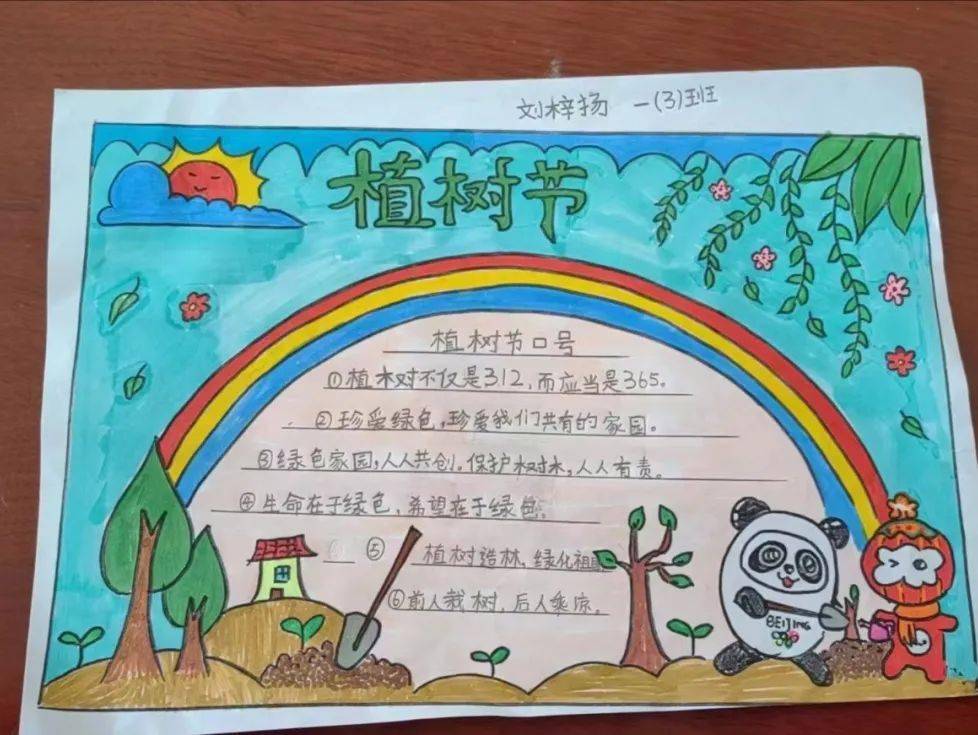 刘梓扬 一(3)班
植树节
植树节口号
①植树不仅是312，而应当是365。
②珍爱绿色，珍爱我们共有的家园。
③绿色家园，人人共创。保护树木，人人有责。
④生命在于绿色，希望在于绿色。
⑤ 植树造林，绿化祖国
⑥前人栽树，后人乘凉。
BEIJING